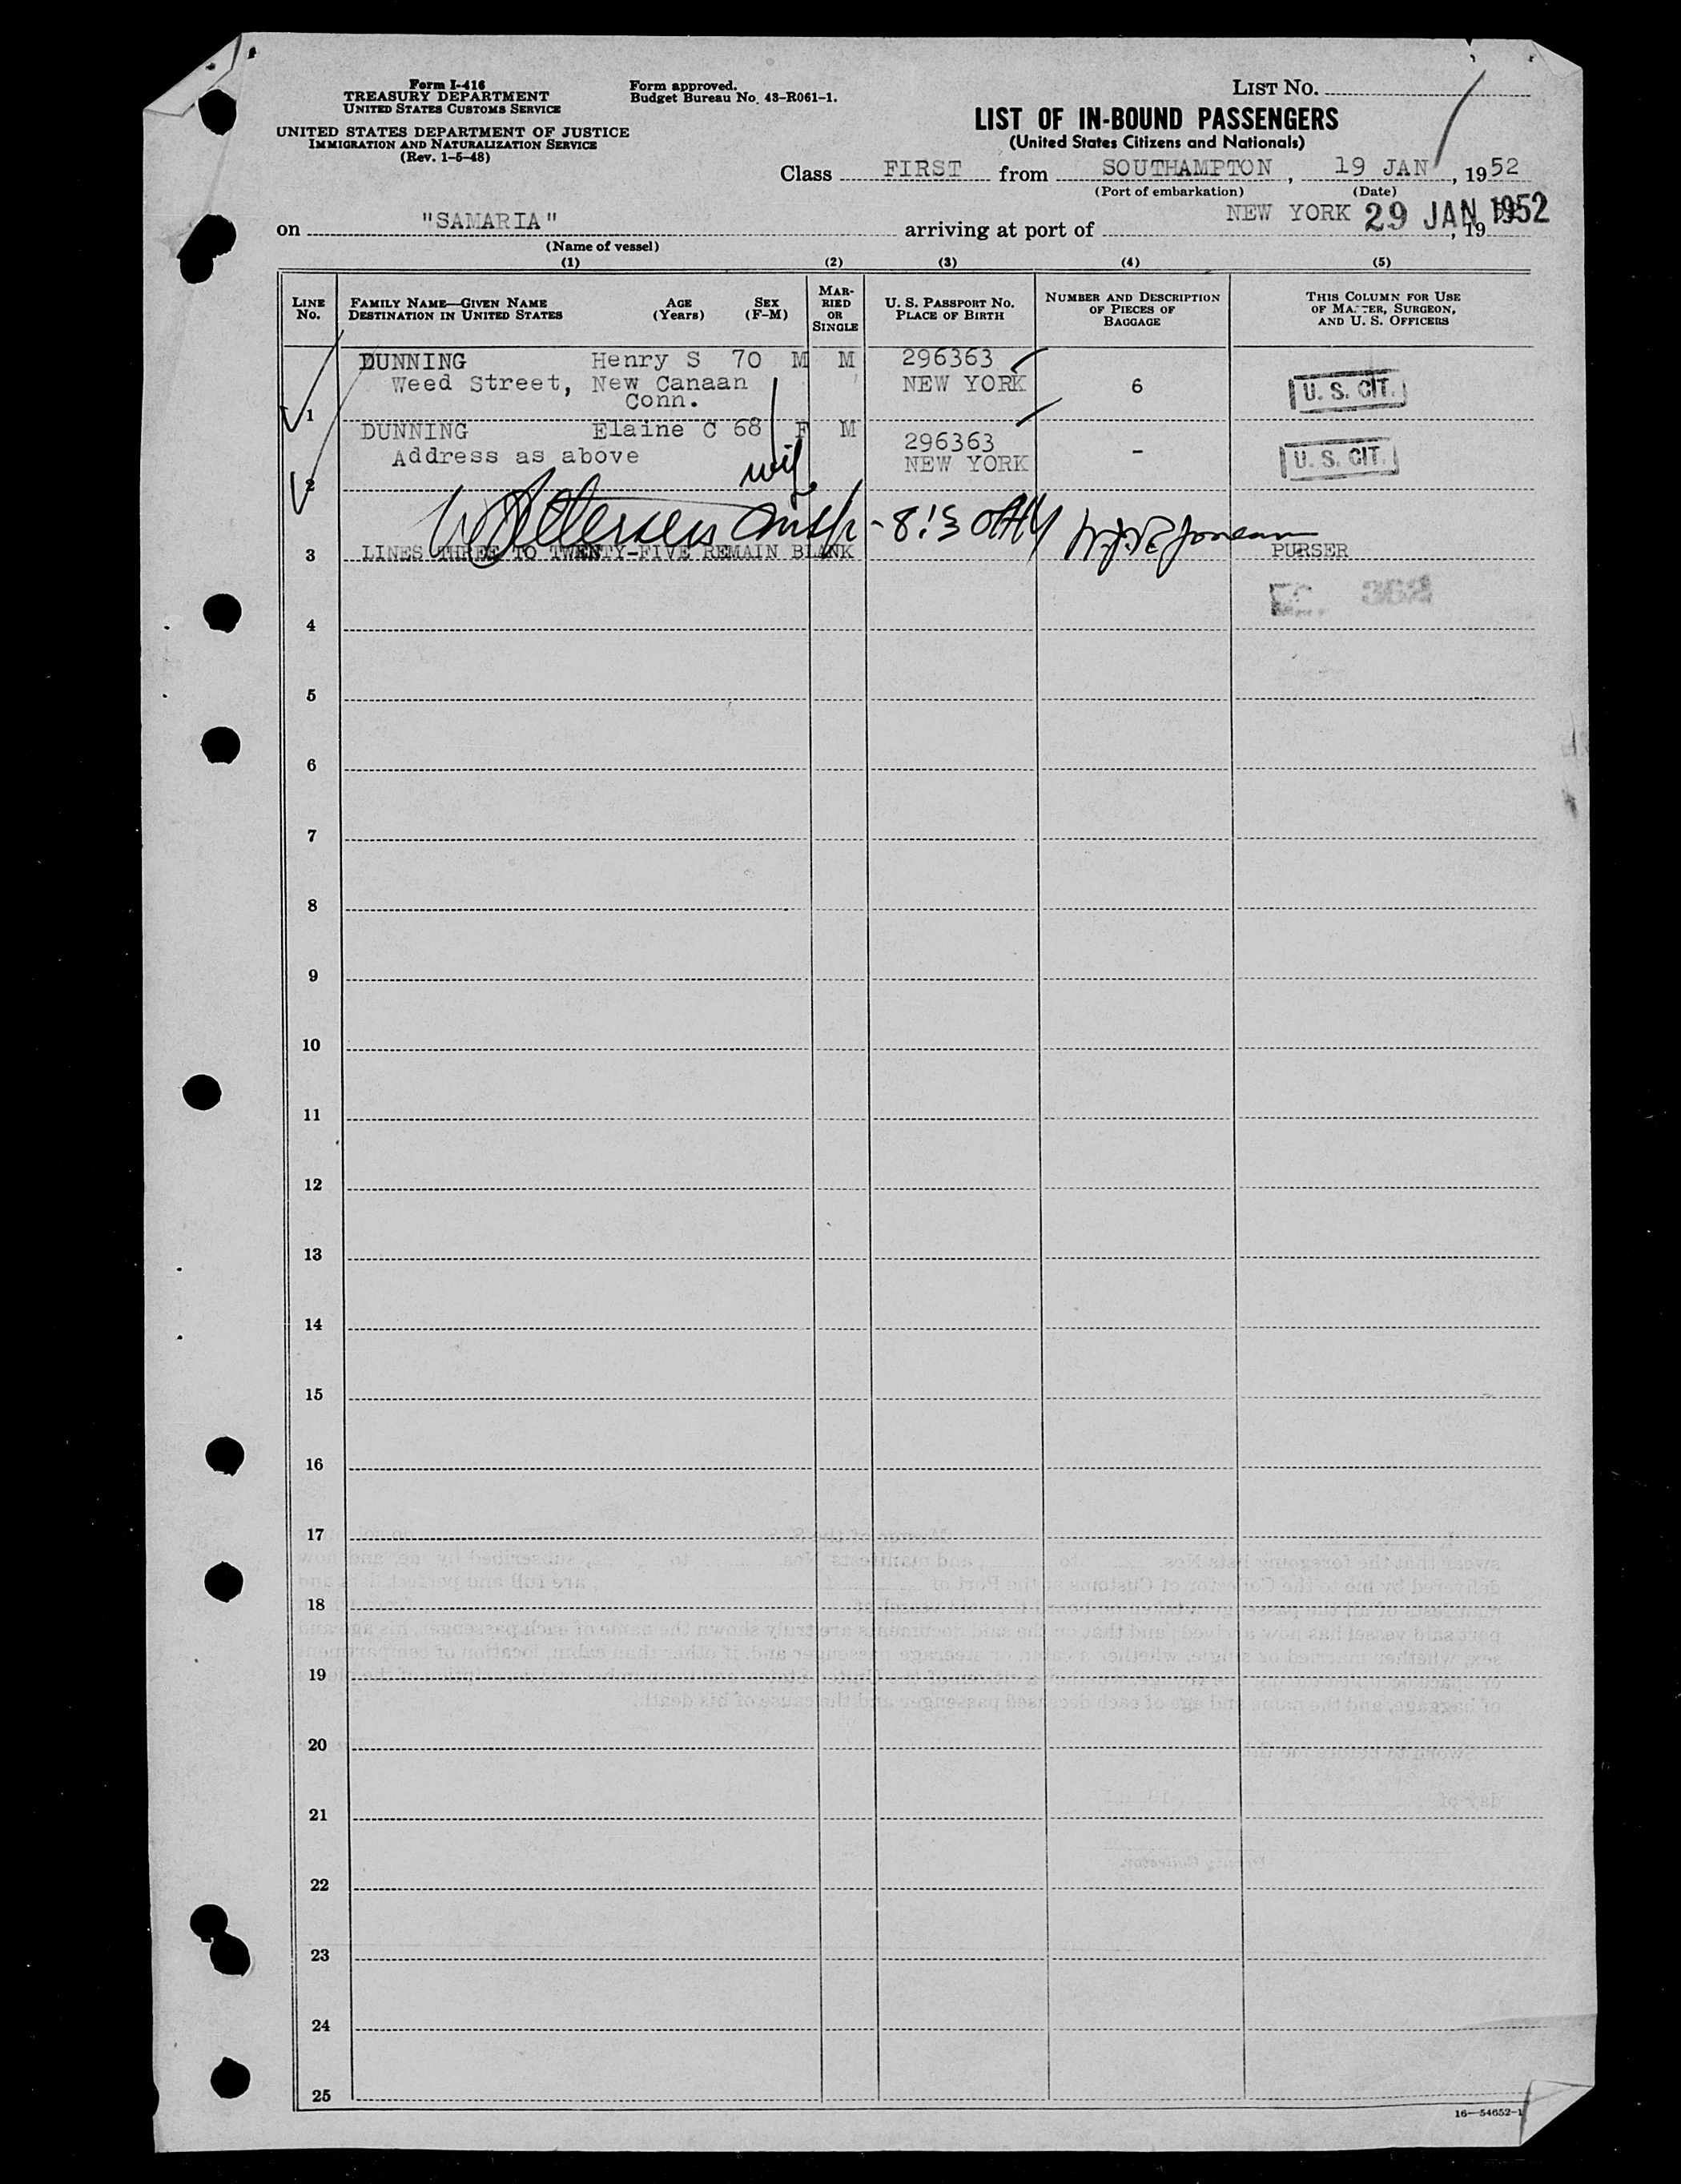 Form I-416
TREASURY DEPARTMENT
UNITED STATES CUSTOMS SERVICE
UNITED STATES DEPARTMENT OF JUSTICE
IMMIGRATION AND NATURALIZATION SERVICE
(Rev. 1-5-48)
Form approved.
Budget Bureau No. 43-R061-1.
LIST NO.
LIST OF IN-BOUND PASSENGERS
(United States Citizens and Nationals)
Class FIRST from SOUTHAMPTON, 19 JAN, 1952
(Port of embarkation) (Date)
on "SAMARIA" arriving at port of NEW YORK 29 JAN 1952, 19
(Name of vessel)
(1) (2) (3) (4) (5)
LINE NO.
FAMILY NAME—GIVEN NAME AGE SEX
DESTINATION IN UNITED STATES (Years) (F-M)
MARRIED OR SINGLE
U. S. PASSPORT NO.
PLACE OF BIRTH
NUMBER AND DESCRIPTION
OF PIECES OF
BAGGAGE
THIS COLUMN FOR USE
OF MASTER, SURGEON,
AND U. S. OFFICERS
DUNNING Henry S 70 M M 296363
Weed Street, New Canaan NEW YORK 6 U. S. CIT.
Conn.
1
DUNNING Elaine C 68 F M 296363
Address as above NEW YORK - U. S. CIT.
wif
2
3 LINES THREE TO TWENTY-FIVE REMAIN BLANK PURSER
4
5
6
7
8
9
10
11
12
13
14
15
16
17
18
19
20
21
22
23
24
25
16—54652-1